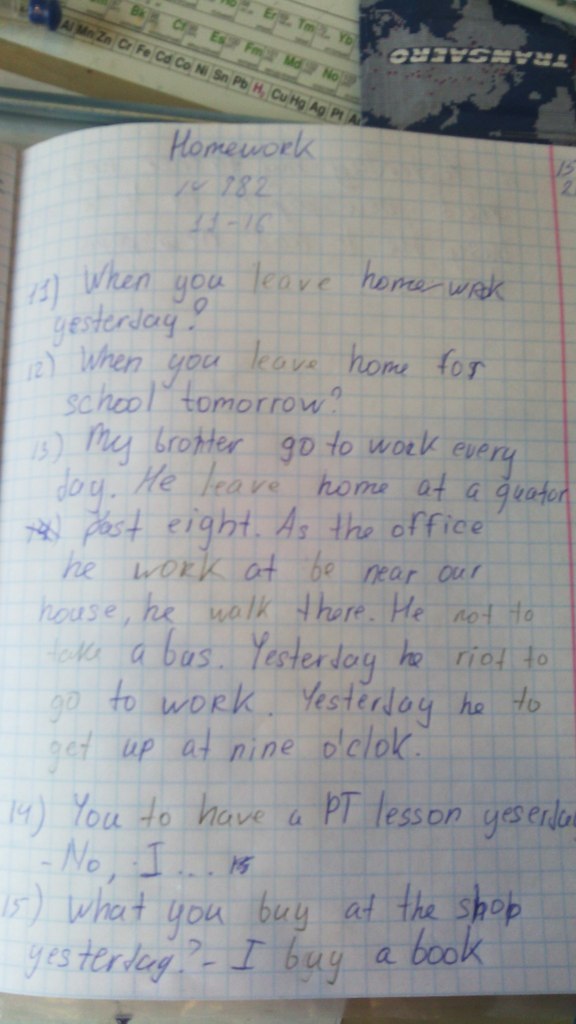 Ho Er Tm Yb
Bk Cf Es Fm Md No
Al Mn Zn Cr Fe Cd Co Ni Sn Pb H₂ Cu Hg Ag Pt
TRANSAERO
15
2
Homework
14 182
11-16
11) When you leave home work
yesterday?
12) When you leave home for
school tomorrow?
13) My brother go to work every
day. He leave home at a quator
past eight. As the office
he work at be near our
house, he walk there. He not to
take a bus. Yesterday he not to
go to work. Yesterday he to
get up at nine o'clok.
14) You to have a PT lesson yeserday
- No, I ...
15) What you buy at the shop
yesterday? - I buy a book